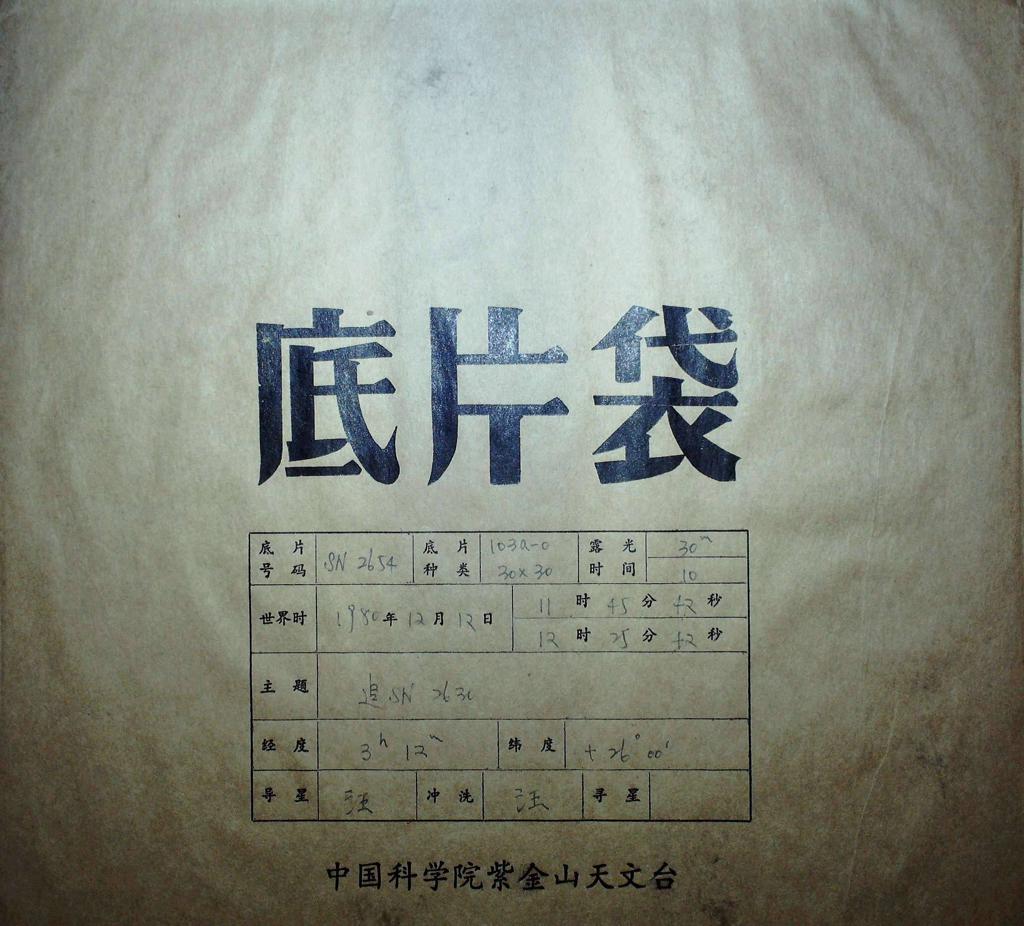 底片袋
底片号码 SN 2654 底片种类 103a-O 30×30 露光时间 30ᵐ 10
世界时 1980年12月12日 11时45分42秒
12时25分42秒
主题 追SN 2630
经度 3ʰ 12ᵐ 纬度 +26°00′
导星 汪 冲洗 汪 寻星
中国科学院紫金山天文台